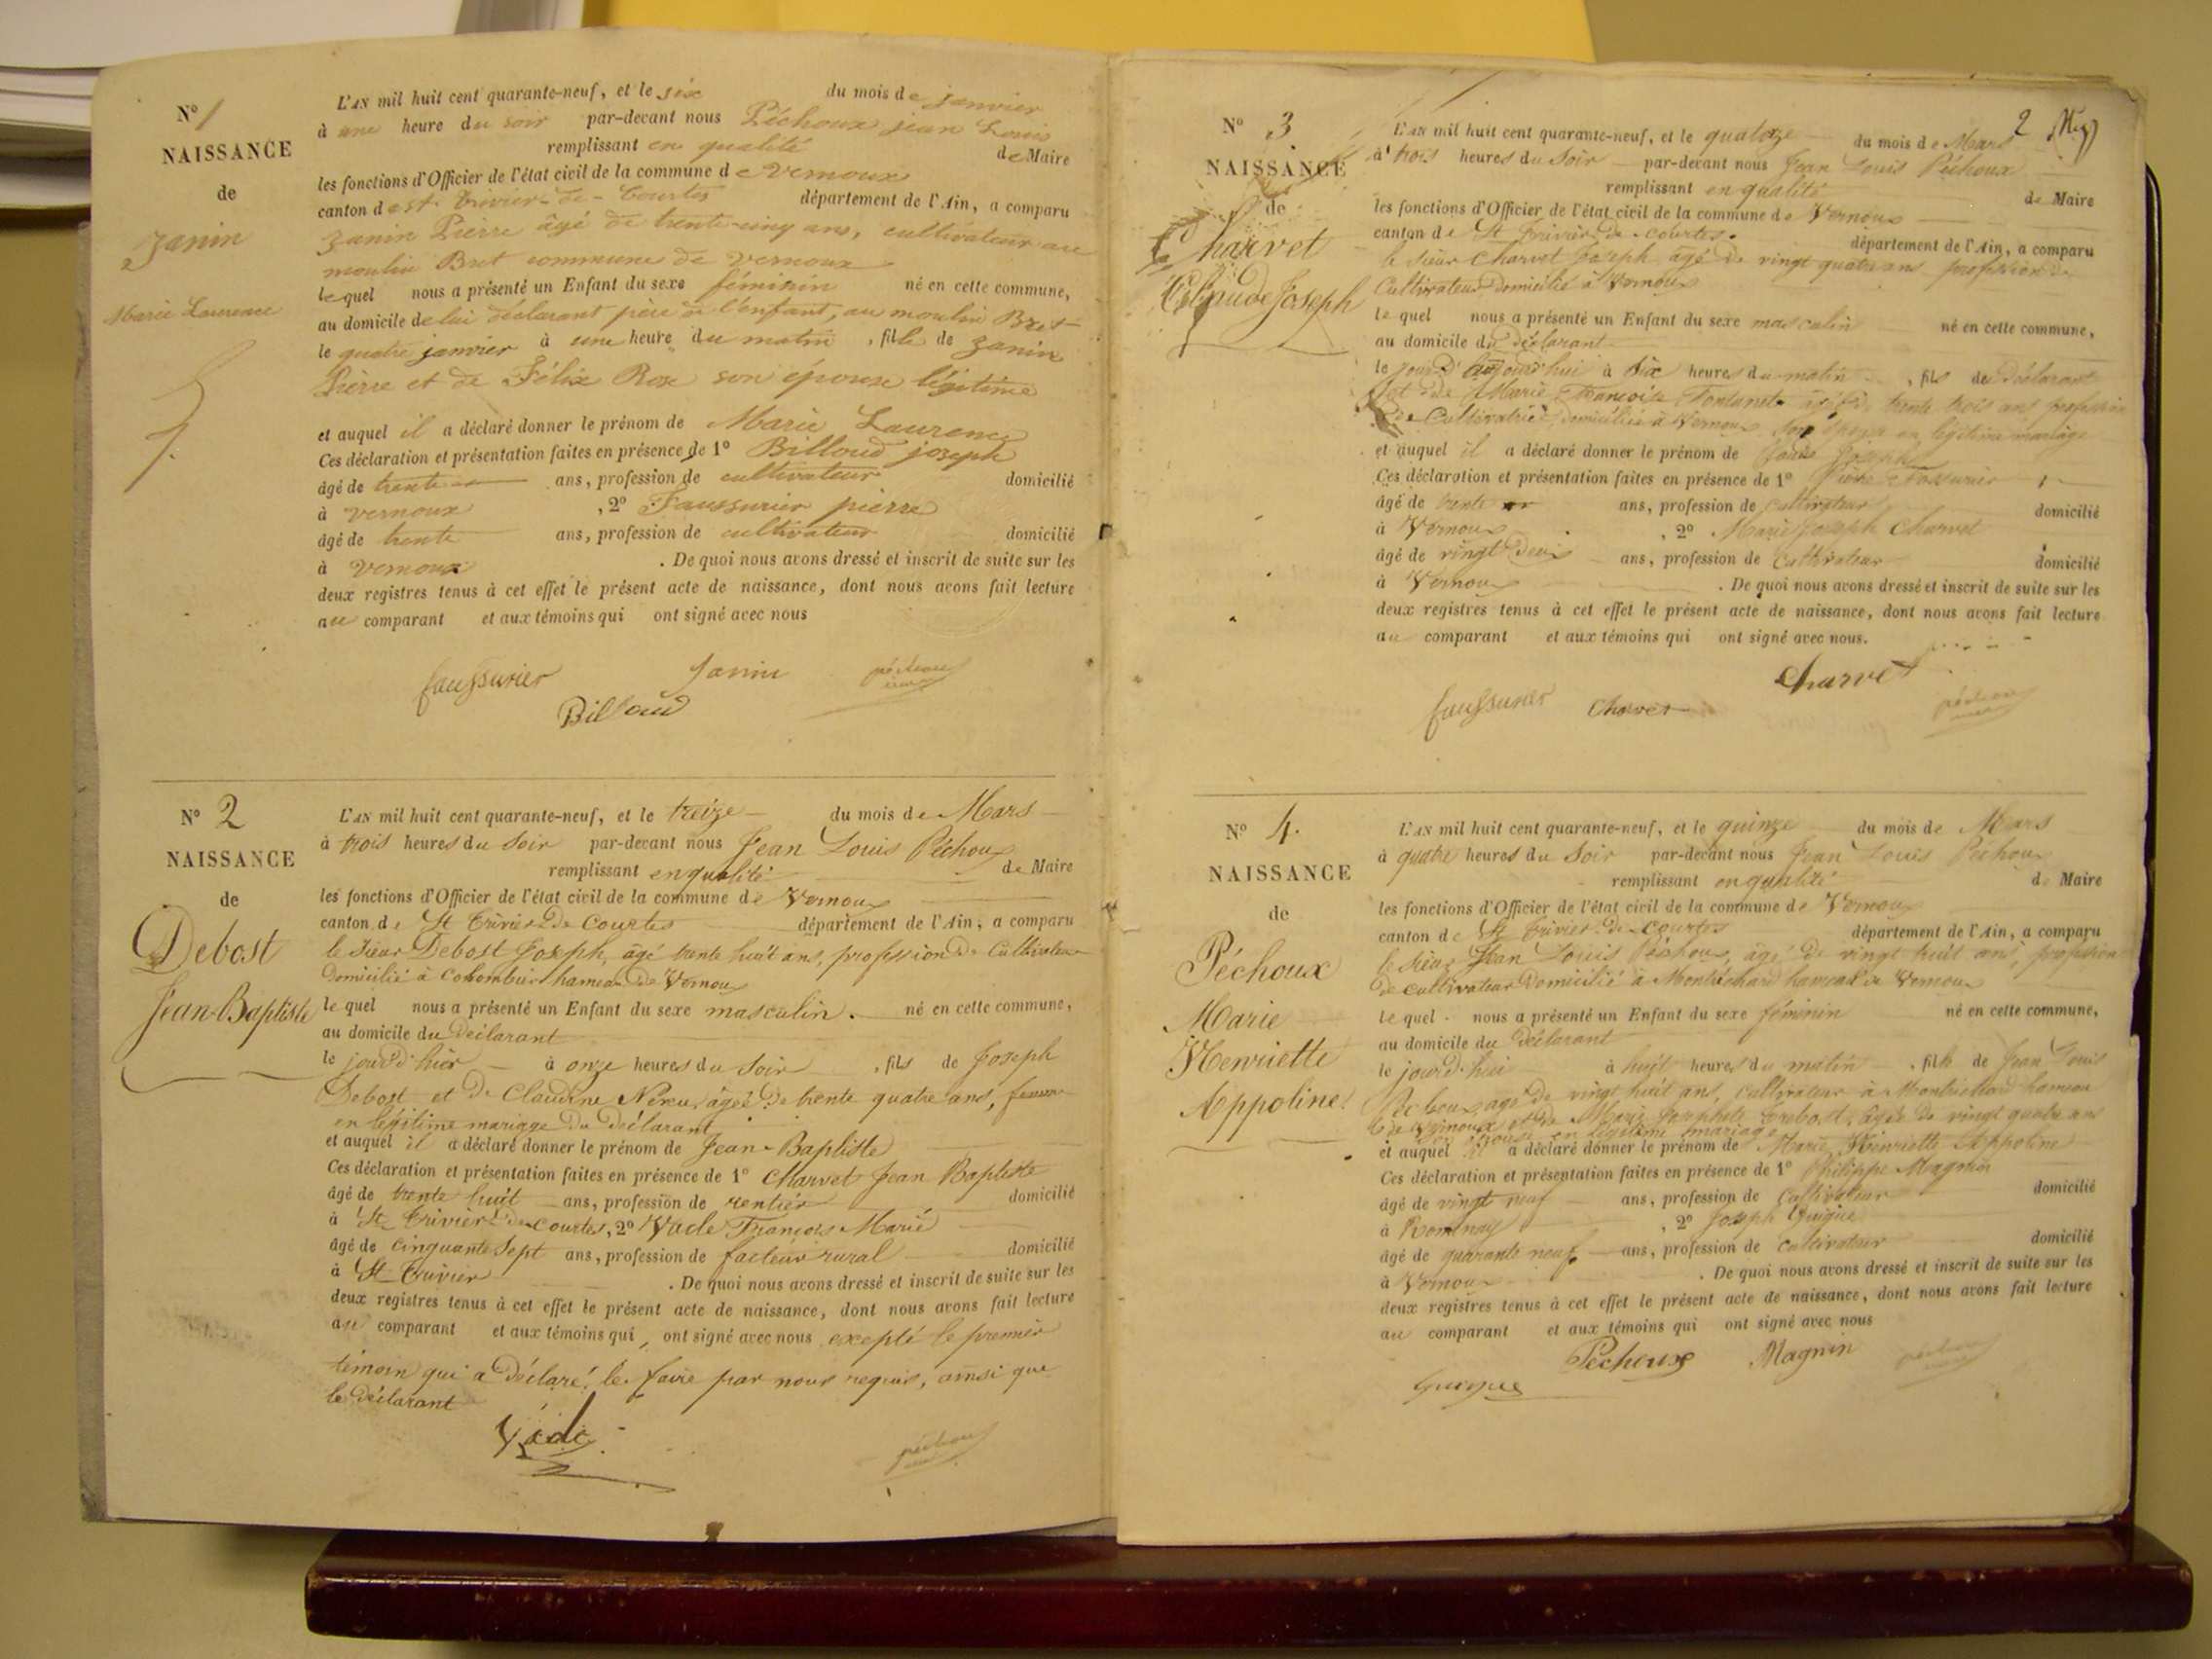 N° 1
NAISSANCE
de
Janin
Marie Laurence
L'AN mil huit cent quarante-neuf, et le six du mois de janvier
à une heure du soir par-devant nous Péchoux jean Louis
remplissant en qualité de Maire
les fonctions d'Officier de l'état civil de la commune de Vernoux
canton de st. Trivier-de-Courtes département de l'Ain, a comparu
Janin Pierre âgé de trente-cinq ans, cultivateur au
moulin Bret commune de Vernoux
lequel nous a présenté un Enfant du sexe féminin né en cette commune,
au domicile de lui déclarant père de l'enfant, au moulin Bret
le quatre janvier à une heure du matin, fille de Janin
Pierre et de Félix Rose son épouse légitime
et auquel il a déclaré donner le prénom de Marie Laurence
Ces déclaration et présentation faites en présence de 1° Billoud joseph
âgé de trente ans, profession de cultivateur domicilié
à Vernoux, 2° Faussurier pierre
âgé de trente ans, profession de cultivateur domicilié
à Vernoux. De quoi nous avons dressé et inscrit de suite sur les
deux registres tenus à cet effet le présent acte de naissance, dont nous avons fait lecture
au comparant et aux témoins qui ont signé avec nous
faussurier Janin péchoux
Billoud
N° 2
NAISSANCE
de
Debost
Jean-Baptiste
L'AN mil huit cent quarante-neuf, et le treize du mois de Mars
à trois heures du soir par-devant nous Jean Louis Péchoux
remplissant en qualité de Maire
les fonctions d'Officier de l'état civil de la commune de Vernoux
canton de St Trivier-De Courtes département de l'Ain, a comparu
le sieur Debost Joseph, âgé trente huit ans, profession de Cultivateur
Domicilié à hameau De Vernoux
lequel nous a présenté un Enfant du sexe masculin. né en cette commune,
au domicile du Déclarant
le jour d'hier à onze heures du soir, fils de Joseph
Debost et de Claudine Neveu, âgée de trente quatre ans, femme
en légitime mariage du déclarant
et auquel il a déclaré donner le prénom de Jean-Baptiste
Ces déclaration et présentation faites en présence de 1° Charvet Jean Baptiste
âgé de trente huit ans, profession de rentier domicilié
à St Trivier de courtes, 2° Vade François Marie
âgé de cinquante sept ans, profession de facteur rural domicilié
à St Trivier. De quoi nous avons dressé et inscrit de suite sur les
deux registres tenus à cet effet le présent acte de naissance, dont nous avons fait lecture
au comparant et aux témoins qui, ont signé avec nous excepté le premier
témoin qui a Déclaré le faire par nous requis, ainsi que
le Déclarant
péchoux
2
N° 3
NAISSANCE
de
Charvet
Claude Joseph
L'AN mil huit cent quarante-neuf, et le quatorze du mois de Mars
à trois heures du Soir par-devant nous Jean Louis Péchoux
remplissant en qualité de Maire
les fonctions d'Officier de l'état civil de la commune de Vernoux
canton de St Trivier de Courtes. département de l'Ain, a comparu
le sieur Charvet Joseph âgé de vingt quatre ans profession de
Cultivateur Domicilié à Vernoux
lequel nous a présenté un Enfant du sexe masculin né en cette commune,
au domicile du Déclarant
le jour d'aujourd'hui à dix heures du matin, fils de déclarant
et de Marie Françoise Fontanet âgée de trente trois ans profession
de Cultivatrice, domiciliée à Vernoux son épouse en légitime mariage
et auquel il a déclaré donner le prénom de Joseph
Ces déclaration et présentation faites en présence de 1° Pierre Fossurier
âgé de trente ans, profession de Cultivateur domicilié
à Vernoux, 2° Marie Joseph Charvet
âgé de vingt Deux ans, profession de Cultivateur domicilié
à Vernoux. De quoi nous avons dressé et inscrit de suite sur les
deux registres tenus à cet effet le présent acte de naissance, dont nous avons fait lecture
au comparant et aux témoins qui ont signé avec nous.
Charvet
faussurier Charvet péchoux
N° 4.
NAISSANCE
de
Péchoux
Marie
Henriette
Appoline
L'AN mil huit cent quarante-neuf, et le quinze du mois de Mars
à quatre heures du Soir par-devant nous Jean Louis Péchoux
remplissant en qualité de Maire
les fonctions d'Officier de l'état civil de la commune de Vernoux
canton de St Trivier de Courtes département de l'Ain, a comparu
le sieur Jean Louis Péchoux, âgé de vingt huit ans, profession
de cultivateur Domicilié à hameau de Vernoux
lequel nous a présenté un Enfant du sexe féminin né en cette commune,
au domicile du Déclarant
le jour d'hui à huit heures du matin, fille de Jean Louis
Péchoux, âgé de vingt huit ans, cultivateur à hameau
de Vernoux et de Marie Josephte Debost, âgée de vingt quatre ans
son épouse en légitime mariage
et auquel il a déclaré donner le prénom de Marie Henriette Appoline
Ces déclaration et présentation faites en présence de 1° Philippe Magnin
âgé de vingt neuf ans, profession de Cultivateur domicilié
à Romenay, 2° Joseph Guigue
âgé de quarante neuf ans, profession de Cultivateur domicilié
à Vernoux. De quoi nous avons dressé et inscrit de suite sur les
deux registres tenus à cet effet le présent acte de naissance, dont nous avons fait lecture
au comparant et aux témoins qui ont signé avec nous
Péchoux Magnin péchoux
Guigue